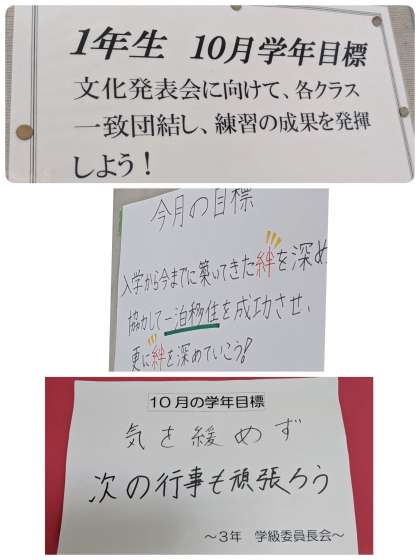 1年生 10月学年目標
文化発表会に向けて、各クラス
一致団結し、練習の成果を発揮
しよう!
今月の目標
入学から今までに築いてきた絆を深め
協力して一泊移住を成功させ、
更に絆を深めていこう!
10月の学年目標
気を緩めず
次の行事も頑張ろう
～3年 学級委員長会～